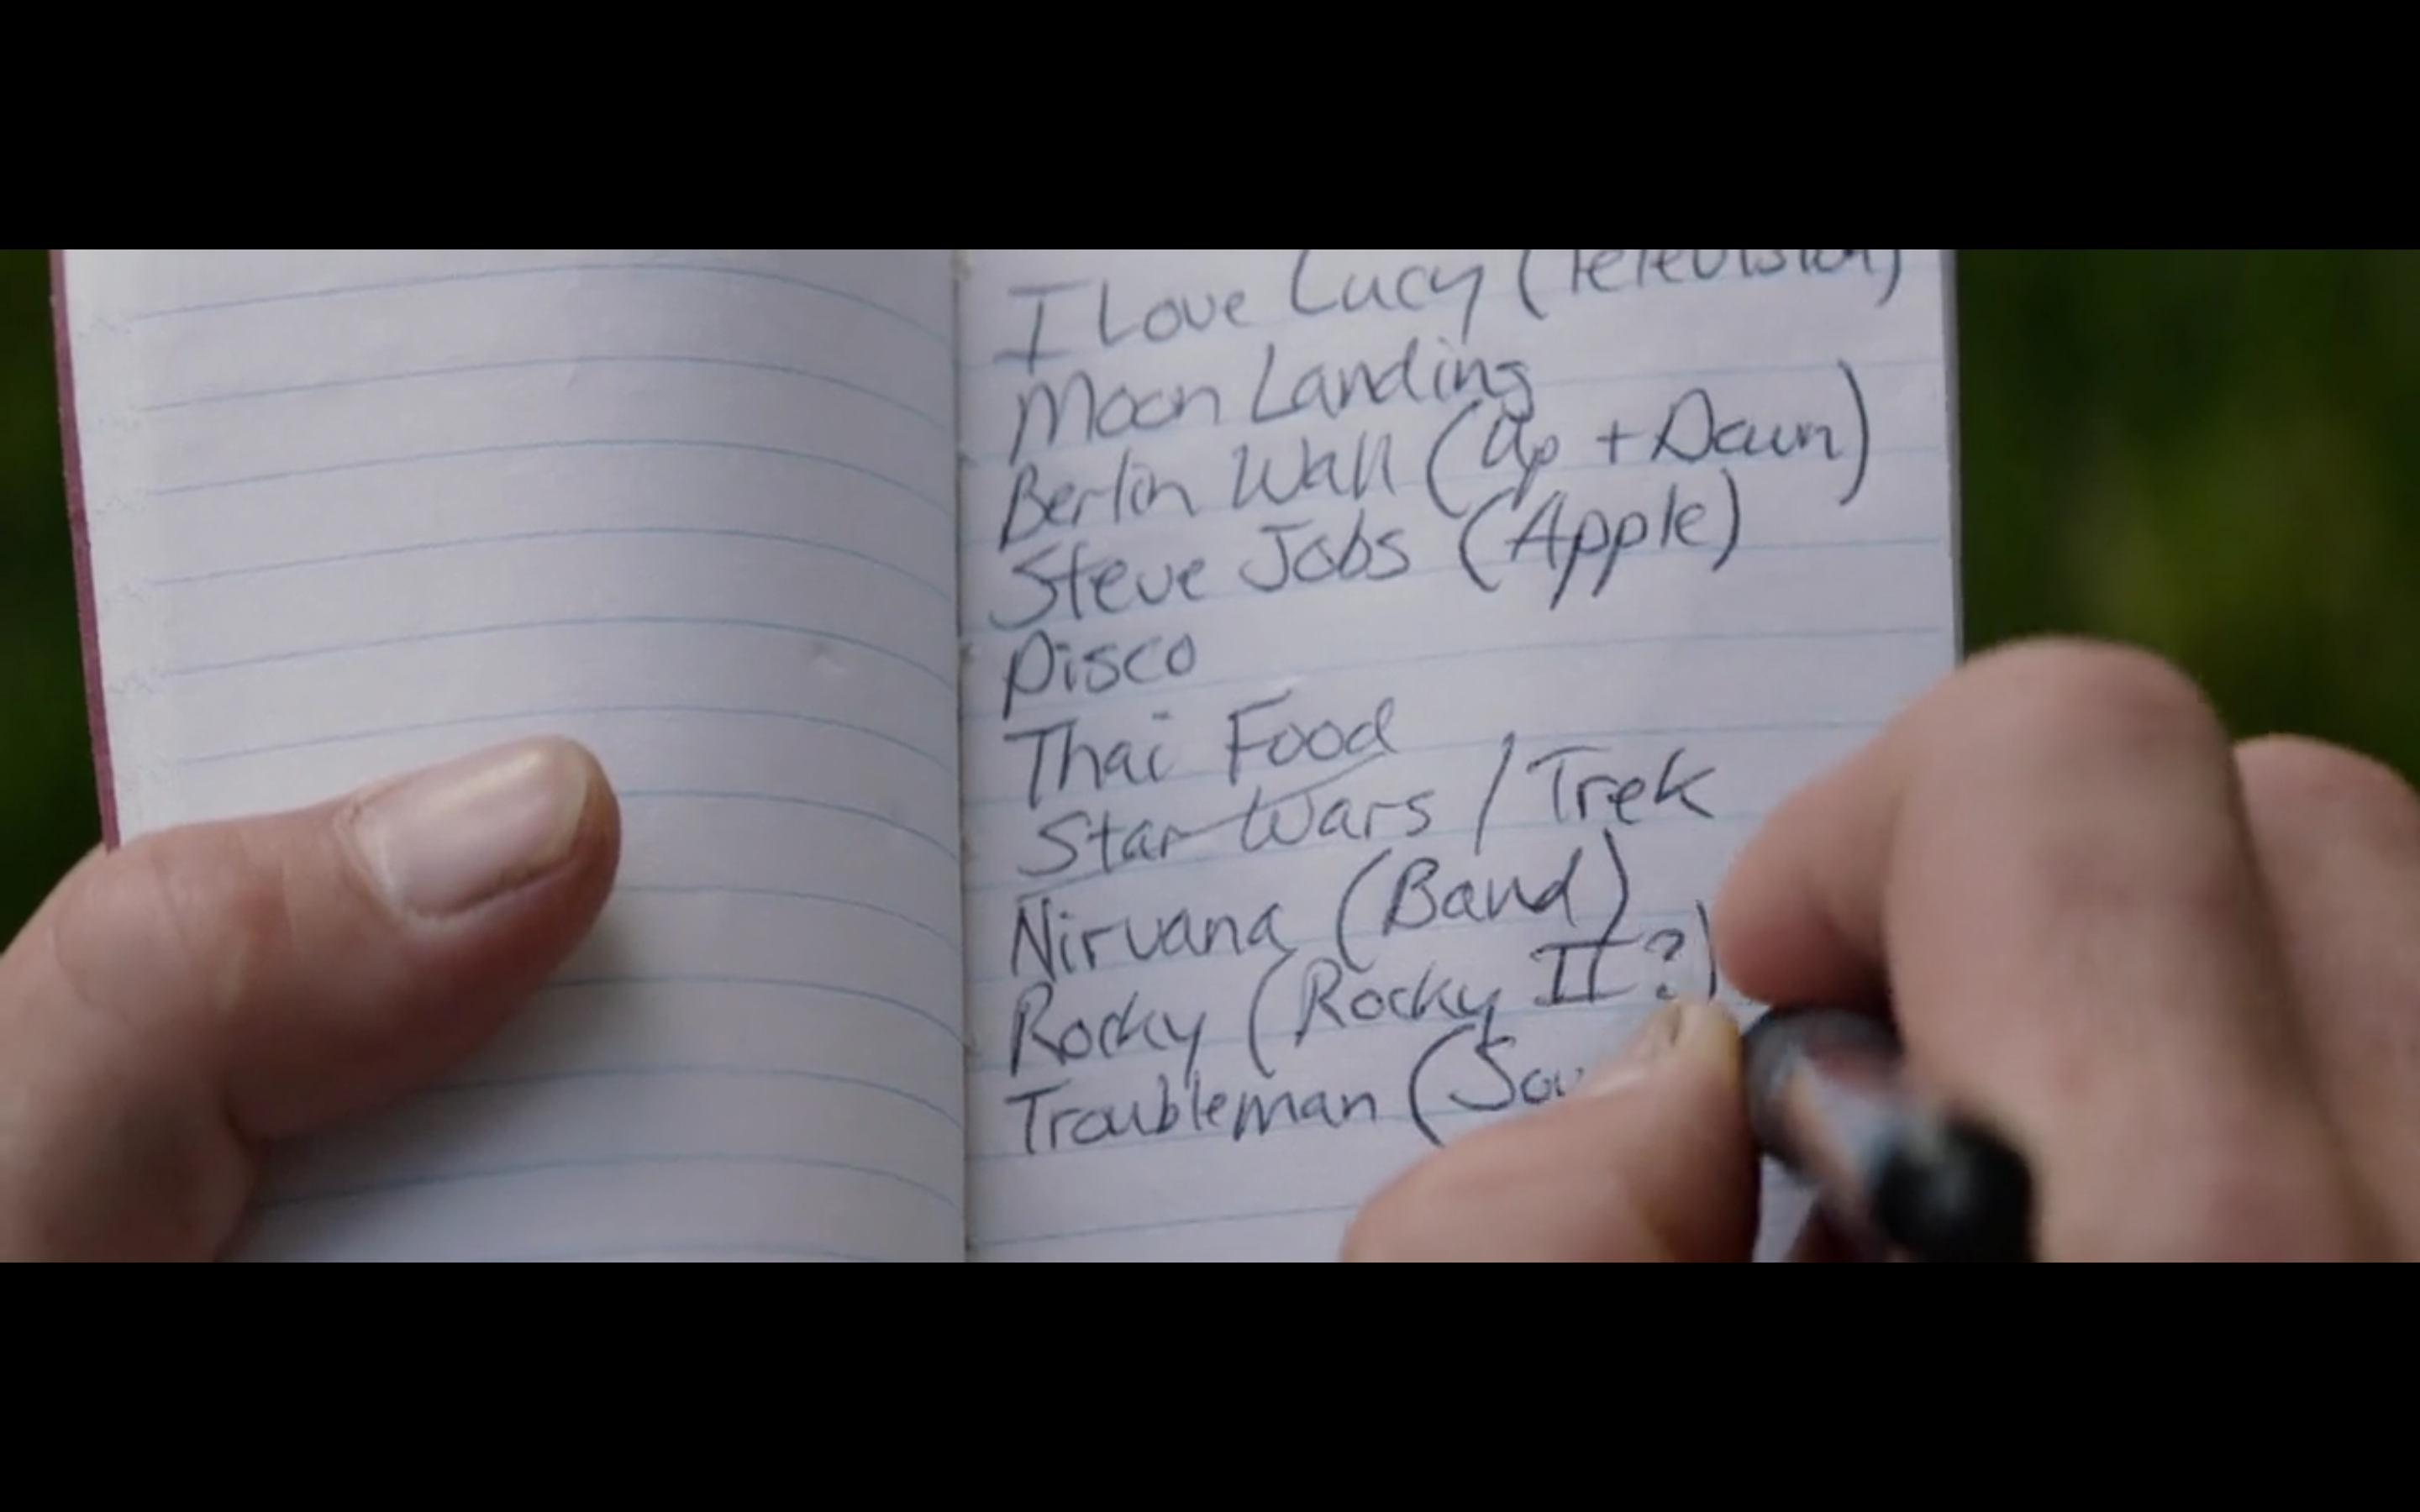 I Love Lucy (Television)
Moon Landing
Berlin Wall (Up + Down)
Steve Jobs (Apple)
Disco
Thai Food
Star Wars / Trek
Nirvana (Band)
Rocky (Rocky II?)
Troubleman (Sou